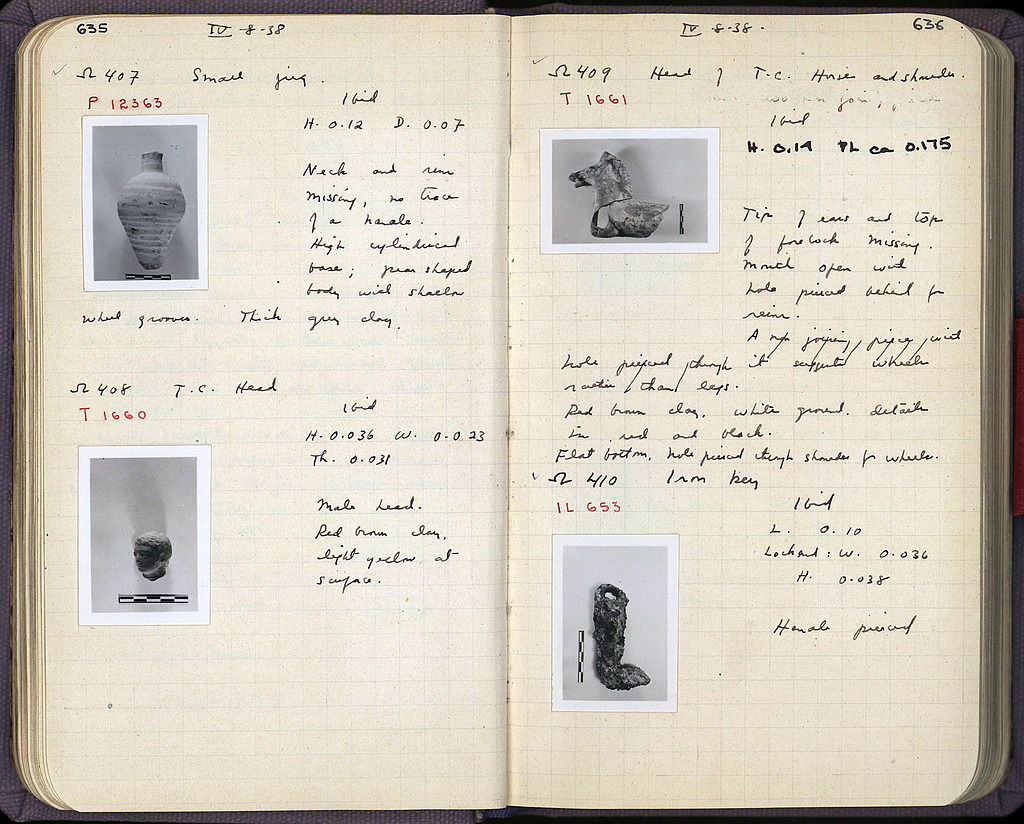 635
IV-8-38
Ω 407 Small jug.
P 12363
Ibid
H. 0.12 D. 0.07
Neck and rim
missing, no trace
of a handle.
High cylindrical
base; pear shaped
body with shallow
wheel grooves. Thick grey clay.
Ω 408 T.C. Head
T 1660
Ibid
H. 0.036 W. 0.023
Th. 0.031
Male head.
Red brown clay,
light yellow at
surface.
636
IV-8-38.
Ω 409 Head of T.C. Horse and shoulder.
T 1661
Ibid
H. 0.14 PL ca 0.175
Tip of ears and top
of forelock missing.
Mouth open with
hole pierced behind for
reins.
A non joining piece, with
hole pierced through it suggests wheels
rather than legs.
Red brown clay, white ground. details
in red and black.
Flat bottom, hole pierced through shoulder for wheels.
Ω 410 Iron key
IL 653
Ibid
L. 0.10
Lockend: W. 0.036
H. 0.038
Handle pierced